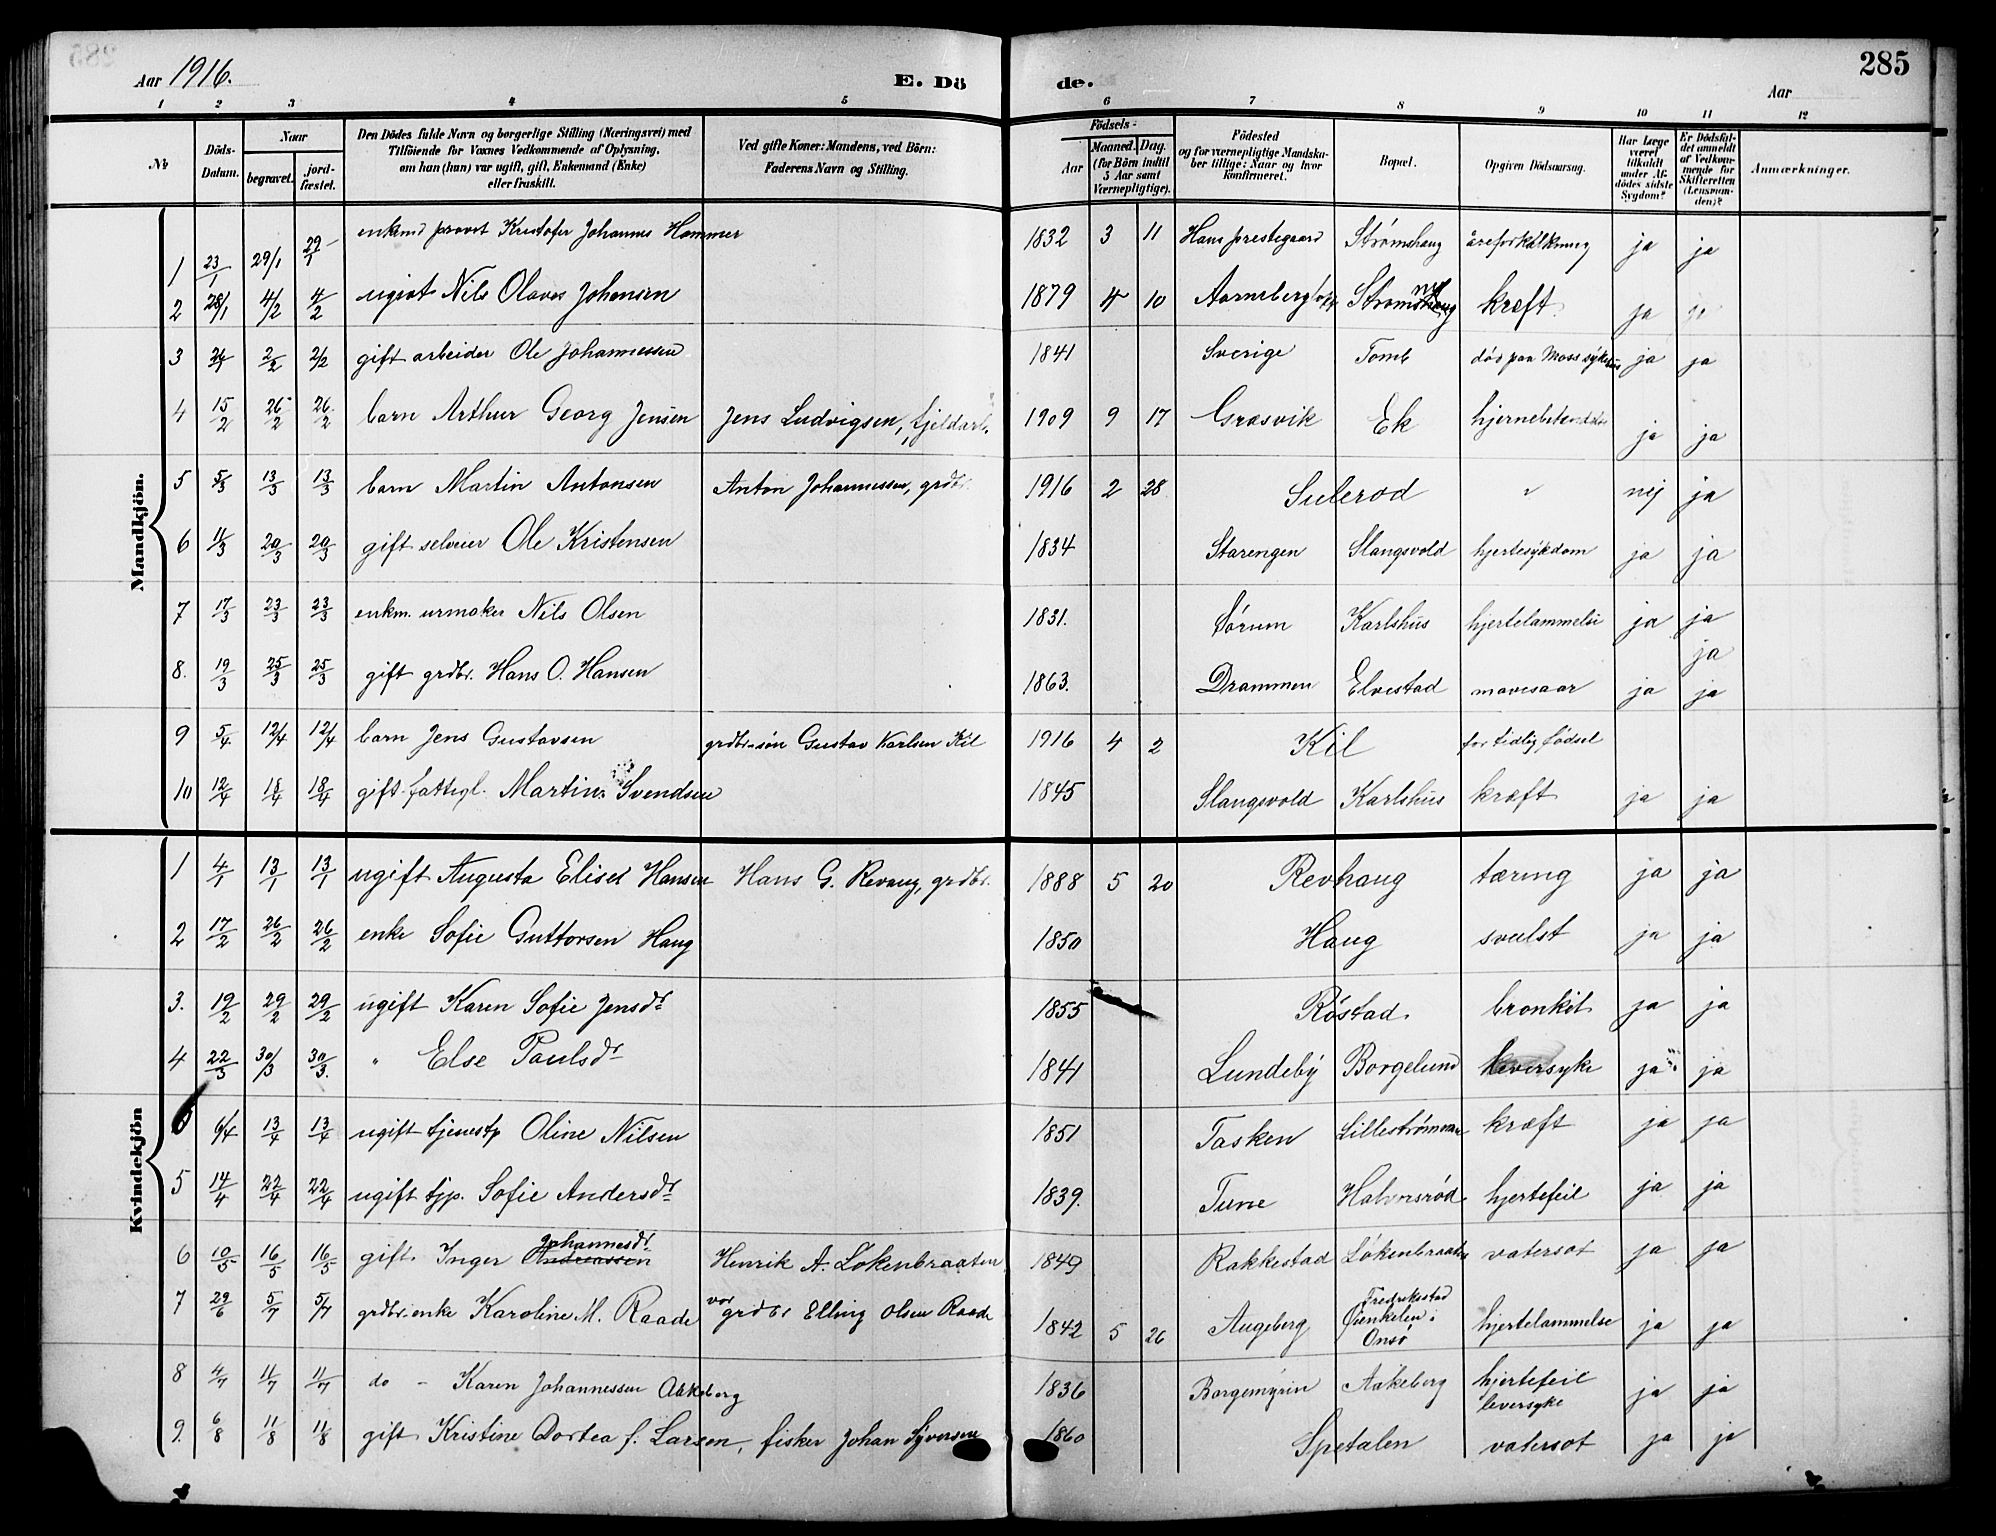 Aar 1916. E. Dö de. Aar 285
1 2 3 4 5 6 7 8 9 10 11 12
No
Döds-Datum.
Naar
begravet.
jordfæstet.
Den Dödes fulde Navn og borgerlige Stilling (Næringsvei) med
Tilföiende for Voxnes Vedkommende af Oplysning,
om han (hun) var ugift, gift, Enkemand (Enke)
eller fraskilt.
Ved gifte Koner: Mandens, ved Börn:
Faderens Navn og Stilling.
Födsels-
Aar
Maaned. Dag.
(for Börn indtil
5 Aar samt
Værnepligtige).
Födested
og for værnepligtige Mandskaber tillige: Naar og hvor
konfirmeret.
Bopæl.
Opgiven Dödsaarsag.
Har Læge
været
tilkaldt
under Afdödes sidste
Sygdom?
Er Dödsfaldet anmeldt
af Vedkommende for
Skifteretten
(Lensmanden)?
Anmærkninger.
Mandkjön.
1 23/1 29/1 29/1 enkmd provst Kristofer Johannes Hammer 1832 3 11 Hans prestegaard Strømshaug åreforkalkning ja ja
2 28/1 4/2 4/2 ugivt Nils Olaves Johansen 1879 4 10 kræft ja ja
3 2/2 2/2 gift arbeider Ole Johannessen 1841 Sverige Tomb död paa Moss sykehus ja ja
4 15/2 26/2 26/2 barn Arthur Georg Jensen Jens Ludvigsen, fjeldarb. 1909 9 17 Græsvik Ek ja ja
5 5/3 13/3 13/3 barn Martin Antonsen Anton Johannessen, grdbr. 1916 2 28 Sulerød " nej ja
6 11/3 20/3 20/3 gift selveier Ole Kristensen 1834 Starengen Slangsvold hjertesykdom ja ja
7 17/3 23/3 23/3 enkm. urmaker Nils Olsen 1831. Sørum Karlshus hjertelammelse ja ja
ja
8. 19/3 25/3 25/3 gift grdbr. Hans O. Hansen 1863. Drammen Elvestad mavesaar ja ja
9 5/4 12/4 12/4 barn Jens Gustavsen grdbr.søn Gustav Karlsen Kil 1916 4 2 Kil for tidlig födsel
10 12/4 18/4 18/4 gift fattigl. Martin Svendsen 1845 Slangsvold Karlshus kræft ja ja
Kvindekjön
1 4/1 13/1 13/1 ugift Augusta Elise Hansen Hans G. Revaug, grdbr. 1888 5 20 Revhaug tæring ja ja
2 17/2 26/2 26/2 enke Sofie Guttorsen Haug 1850 Haug svulst ja ja
3. 19/2 29/2 29/2 ugift Karen Sofie Jensdr 1855 Röstad. bronkit ja ja
4 22/3 30/3 30/3. " Else Paulsdr 1841 Lundeby Borgelund leversyke ja ja
6/4 13/4 13/4 ugift tjenestp Oline Nilsen 1851 Tasken kræft ja ja
5 14/4 22/4 22/4 ugift tjp. Sofie Andersdr 1839. Tune Halvorsrød hjertefeil ja ja
6 10/5 16/5 16/5 gift Inger Andreassen Johannesdr Henrik A. Løkenbraaten 1849 Rakkestad Løkenbraaten vatersot ja ja
7 29/6 5/7 5/7 grdbr.enke Karoline M. Raade grdbr Elling Olsen Raade 1842 5 26 Augeberg Fredrikstad
Øienkelen i
Onsø hjertelammelse ja ja
8 4/7 11/7 11/7 do - Karen Johannessen Aakeberg 1836 Borgemyren Aakeberg hjertefeil
leversyke ja ja
9. 6/8 11/8 11/8 gift Kristine Dortea f. Larsen, fisker Johan Syversen 1860 Spetalen vatersot ja ja